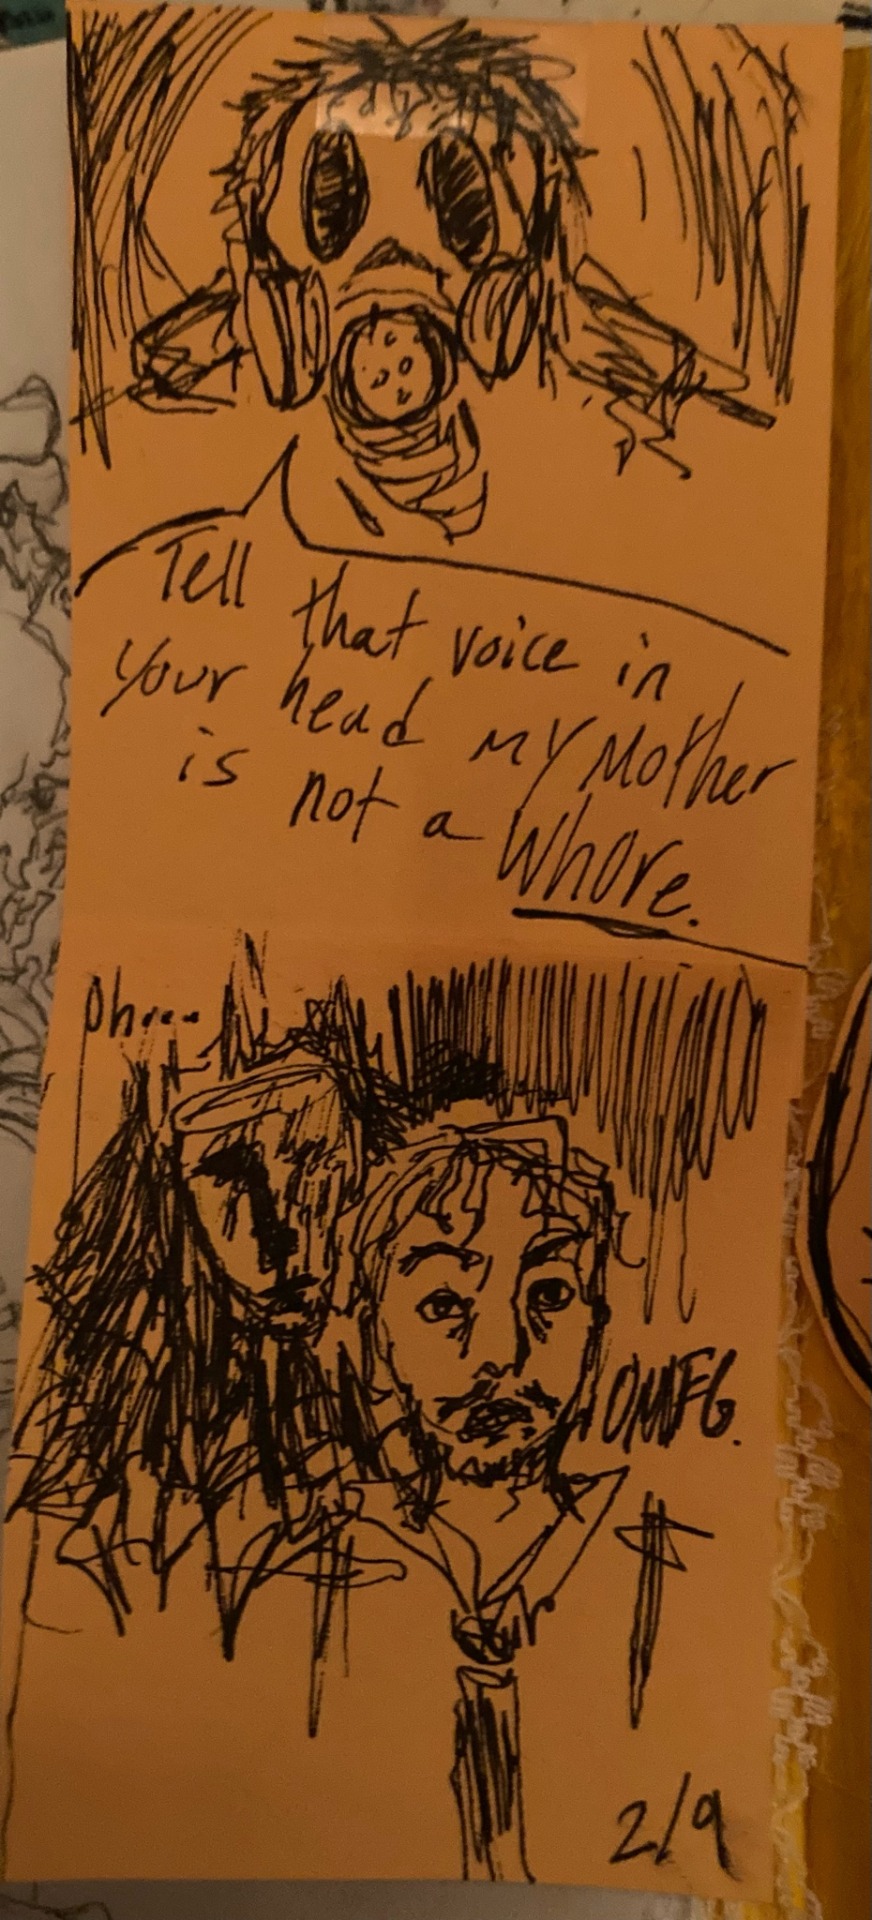 Tell
that voice in
your head my Mother
is not a Whore.
Oh....
OMFG.
2/9